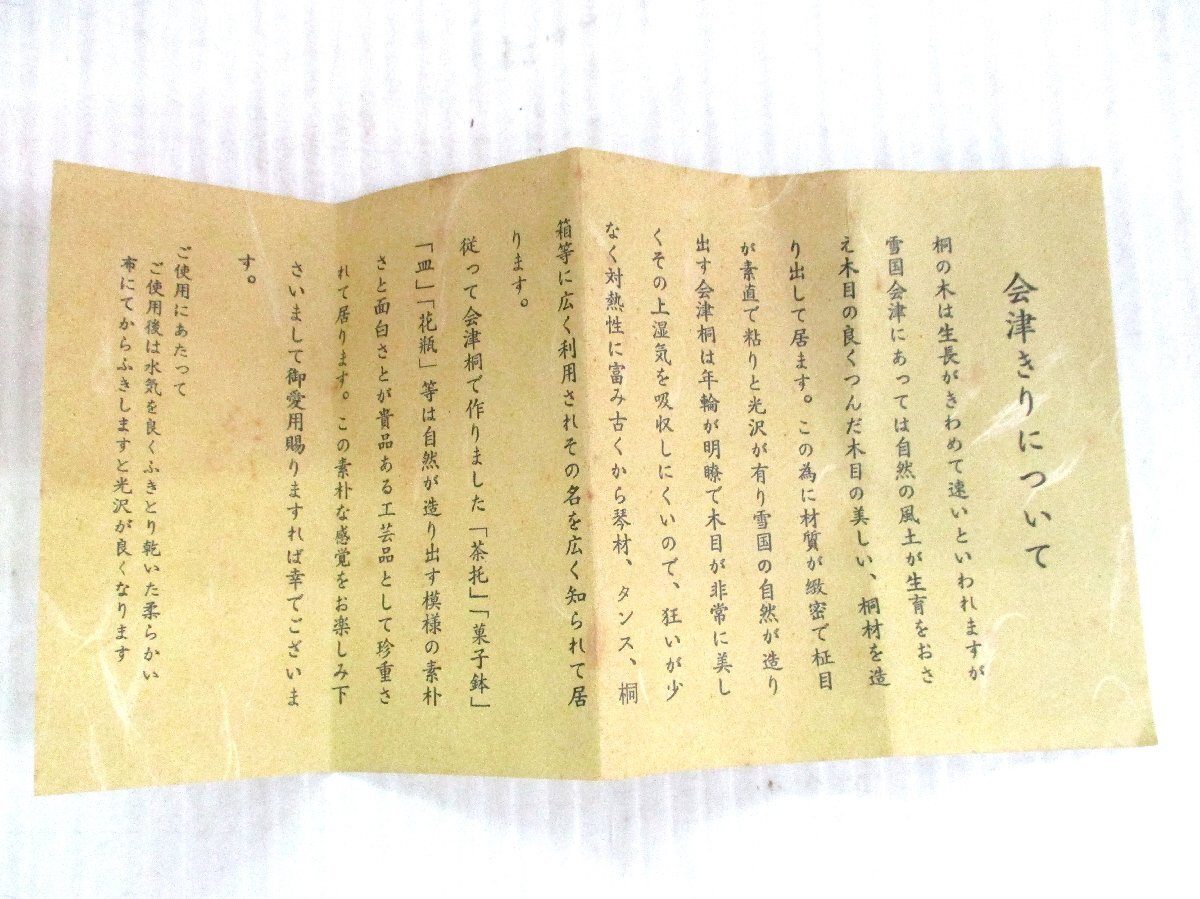 会津きりについて
桐の木は生長がきわめて速いといわれますが
雪国会津にあっては自然の風土が生育をおさ
え木目の良くつんだ木目の美しい、桐材を造
り出して居ます。この為に材質が緻密で柾目
が素直で粘りと光沢が有り雪国の自然が造り
出す会津桐は年輪が明瞭で木目が非常に美し
くその上湿気を吸収しにくいので、狂いが少
なく対熱性に富み古くから琴材、タンス、桐
箱等に広く利用されその名を広く知られて居
ります。
従って会津桐で作りました「茶托」「菓子鉢」
「皿」「花瓶」等は自然が造り出す模様の素朴
さと面白さとが貴品ある工芸品として珍重さ
れて居ります。この素朴な感覚をお楽しみ下
さいまして御愛用賜りますれば幸でございま
す。
ご使用にあたって
ご使用後は水気を良くふきとり乾いた柔らかい
布にてからぶきしますと光沢が良くなります